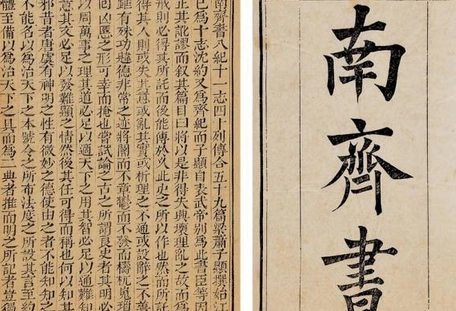 南齊書
南齊書八紀十一志四十列傳合五十九篇梁蕭子顯撰始江
已為十志沈約又為齊紀而子顯自表武帝別為此書臣等因
正其訛謬而敘其篇目曰將以是非得失興壞理亂之故而
戒則必得其所託而後能傳於久此史之所以作也然而所
得其人則或失其意或亂其實或析理之不通或設辭之不善
有殊功韙德非常之迹將闇而不章鬱而不發而檮杌嵬瑣
回凶慝之形可幸而掩也嘗試論之古之所謂良史者其明必
以周萬事之理其道必足以適天下之用其智必足以通難知
意其文必足以發難顯之情然後其任可得而稱也何以知其
邪昔者唐虞有神明之性有微妙之德使由之者不能知知之
不能名以為治天下之本號令之所布法度之所設其言至約
體至備以為治天下之具而為二典者推而明之所記者豈獨